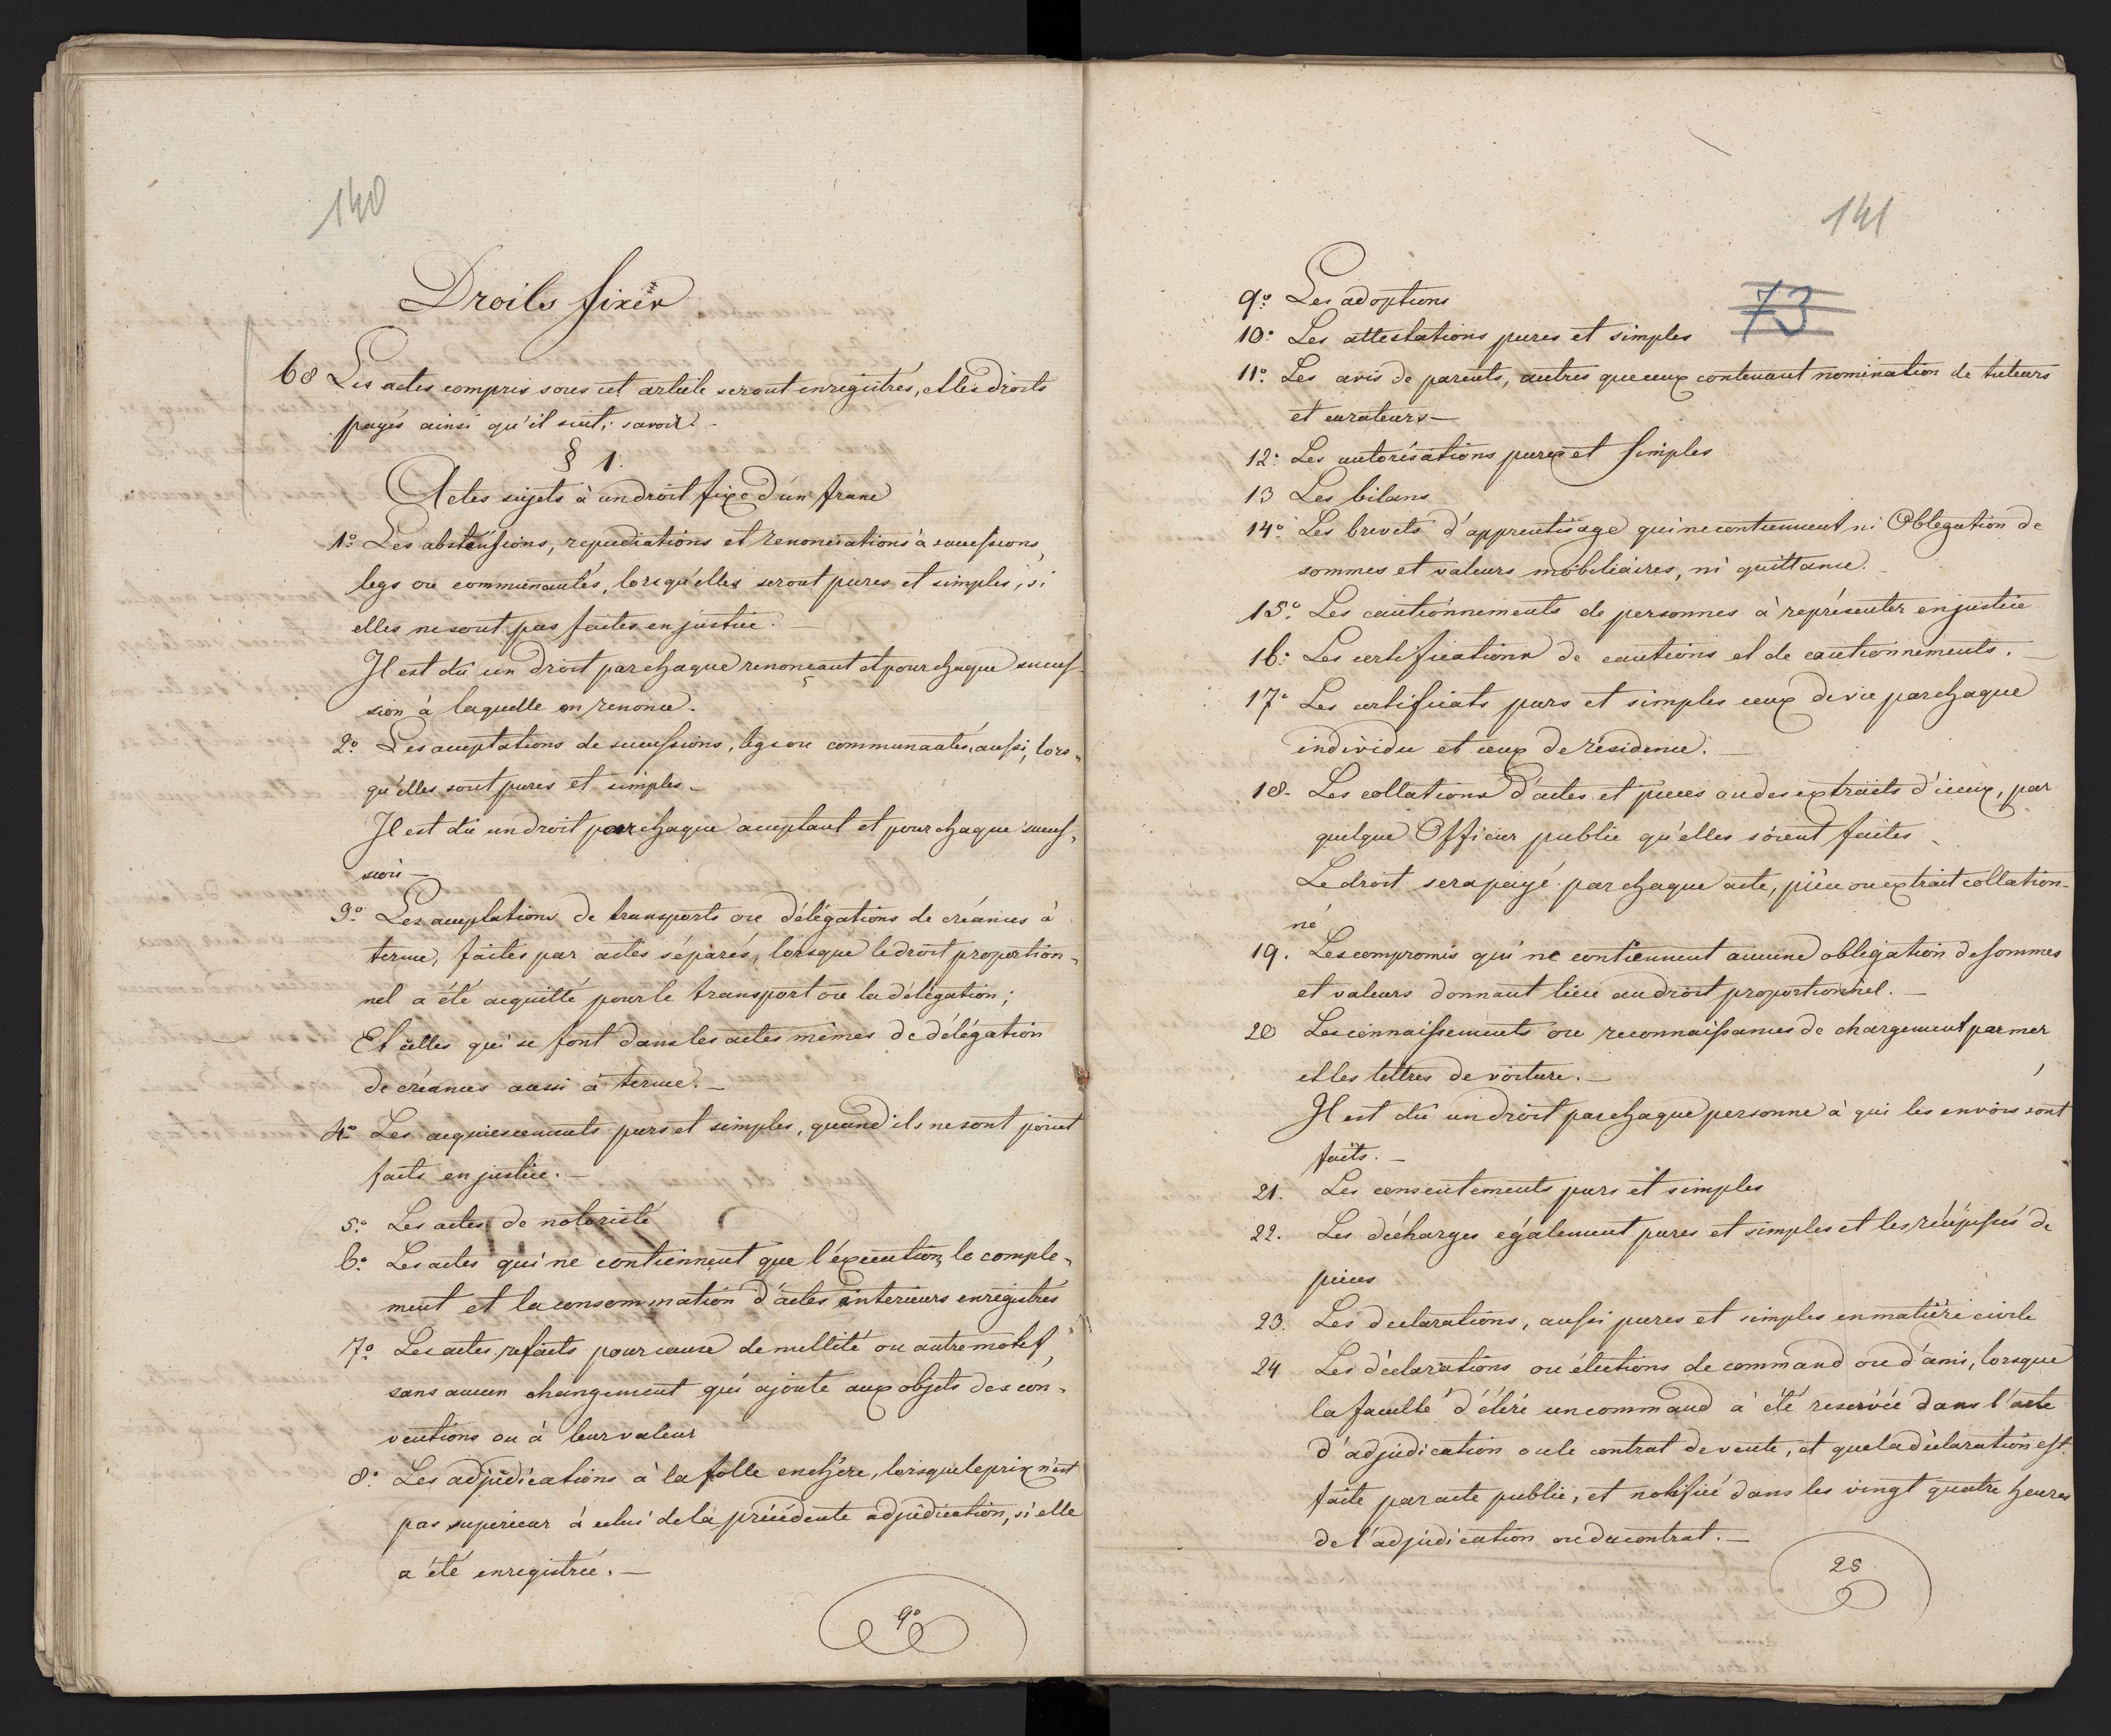 140
Droits fixes
68 Les actes compris sous cet article seront enregistrés, et les droits
payés ainsi qu'il suit; savoir:
§ 1.
Actes sujets à un droit fixe d'un franc
1º Les abstensions, repudiations et renonciations à successions,
legs ou communautés, lorsqu'elles seront pures et simples, si
elles ne sont pas faites en justice.
Il est dû un droit par chaque renonçant et pour chaque succes-
sion à laquelle on renonce.
2º Les acceptations de successions, legs ou communautés, aussi, lors-
qu'elles sont pures et simples.
Il est dû un droit par chaque acceptant et pour chaque succes-
sion —
3º Les acceptations de transports ou délégations de créances à
terme, faites par actes séparés, lorsque le droit proportion-
nel a été acquitté pour le transport ou la délégation;
Et celles qui se font dans les actes mêmes de délégation
de créances aussi à terme. —
4º Les acquiescements purs et simples, quand ils ne sont point
faits en justice. —
5º Les actes de notoriété
6º Les actes qui ne contiennent que l'execution, le comple-
ment et la consommation d'actes anterieurs enregistrés
7º Les actes refaits pour cause de nullité ou autre motif,
sans aucun changement qui ajoute aux objets des con-
ventions ou à leur valeur
8º Les adjudications à la folle enchère, lorsque le prix n'est
pas superieur à celui de la précédente adjudication, si elle
a été enregistrée. —
9º
141
73
9º Les adoptions
10º Les attestations pures et simples
11º Les avis de parents, autres que ceux contenant nomination de tuteurs
et curateurs —
12º Les autorisations pures et simples
13 Les bilans
14º Les brevets d'apprentisage qui ne contiennent ni Obligation de
sommes et valeurs mobiliaires, ni quittance.
15º Les cautionnements de personnes à représenter en justice
16º Les certifications de cautions et de cautionnements. —
17º Les certificats purs et simples ceux de vie par chaque
individu et ceux de résidence. —
18. Les collations d'actes et pieces ou des extraits d'iceux, par
quelque Officier public qu'elles soient faites
Le droit sera payé par chaque acte, pièce ou extrait collation-
né
19. Les compromis qui ne contiennent aucune obligation de sommes
et valeurs donnant lieu au droit proportionnel. —
20 Les connaissements ou reconnaissances de chargement par mer
et les lettres de voiture. —
Il est dû un droit par chaque personne à qui les envois sont
faits. —
21. Les consentements purs et simples
22. Les décharges également pures et simples et les récépissés de
pieces
23. Les declarations, aussi pures et simples en matière civile
24 Les déclarations ou élections de command ou d'ami, lorsque
la faculté d'élire un command a été reservée dans l'acte
d'adjudication ou le contrat de vente, et que la déclaration est
faite par acte public, et notifié dans les vingt quatre heures
de l'adjudication ou du contrat. —
25